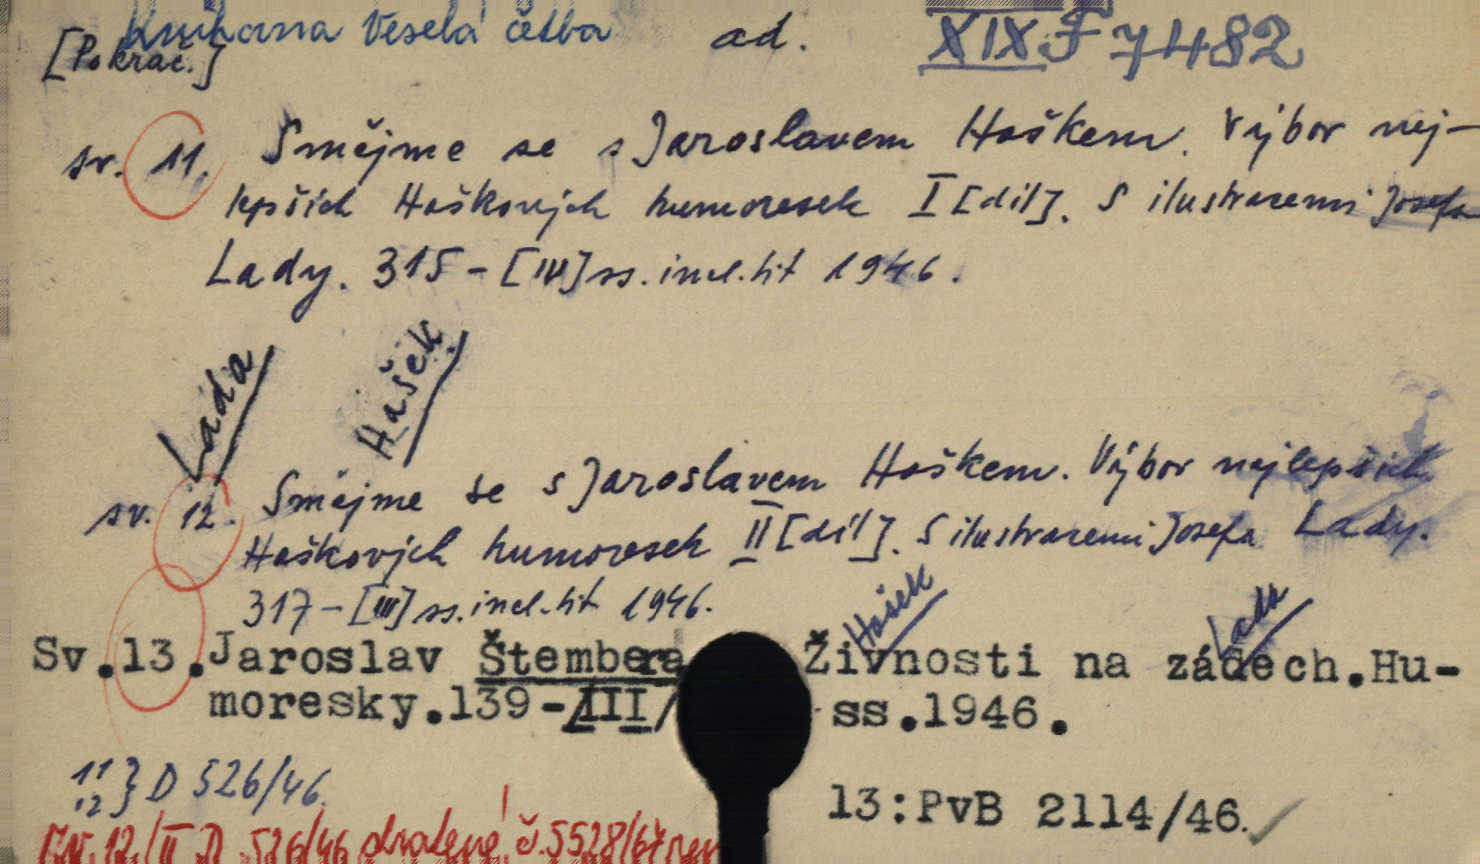 Knihovna Veselá četba ad. XIX F 7482
[Pokrač.]
sv. 11. Smějme se s Jaroslavem Haškem. Výbor nej-
lepších Haškových humoresek I [díl]. S ilustracemi Josefa
Lady. 315 - [IV] ss. incl. tit 1946.
Lada
Hašek
sv. 12. Smějme se s Jaroslavem Haškem. Výbor nejlepších
Haškových humoresek II [díl]. S ilustracemi Josefa Lady.
317 - [III] ss. incl. tit 1946.
Hašek
Lada
Sv.13.Jaroslav Štembera Živnosti na zádech.Hu-
moresky.139-/III/ ss.1946.
11
12 } D 526/46.
13:PvB 2114/46.
12/II D 526/46 č. 5528/